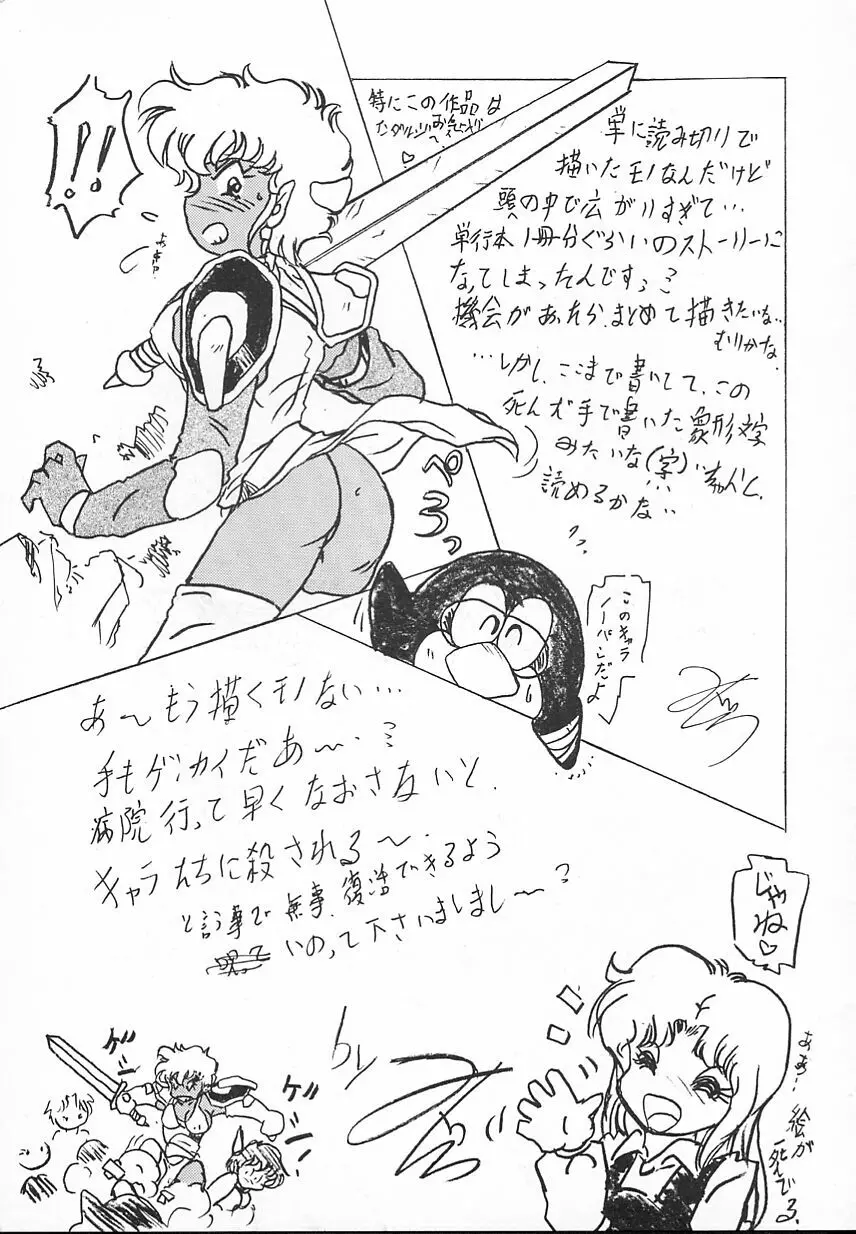 !!
特にこの作品は
お気に
単に読み切りで
描いたモノなんだけど
頭の中で広がりすぎて…
単行本1冊分ぐらいのストーリーに
なってしまったんですぅ
機会があったらまとめて描きたいな…
むりかな。
…しかし、ここまで書いてて、この
死んだ手で書いた象形文字
みたいな(字)…ちゃんと、
読めるかな…
ペろっ
このキャラ
ノーパンだよ
あ〜もう描くモノない…
手もゲンカイだあ〜…
病院行って早くなおさないと、
キャラたちに殺される〜
と言う事で無事、復活できるよう
いのって下さいましまし〜
じゃね♡
ああ!絵が死んでる。
by
ゲ
ゲ